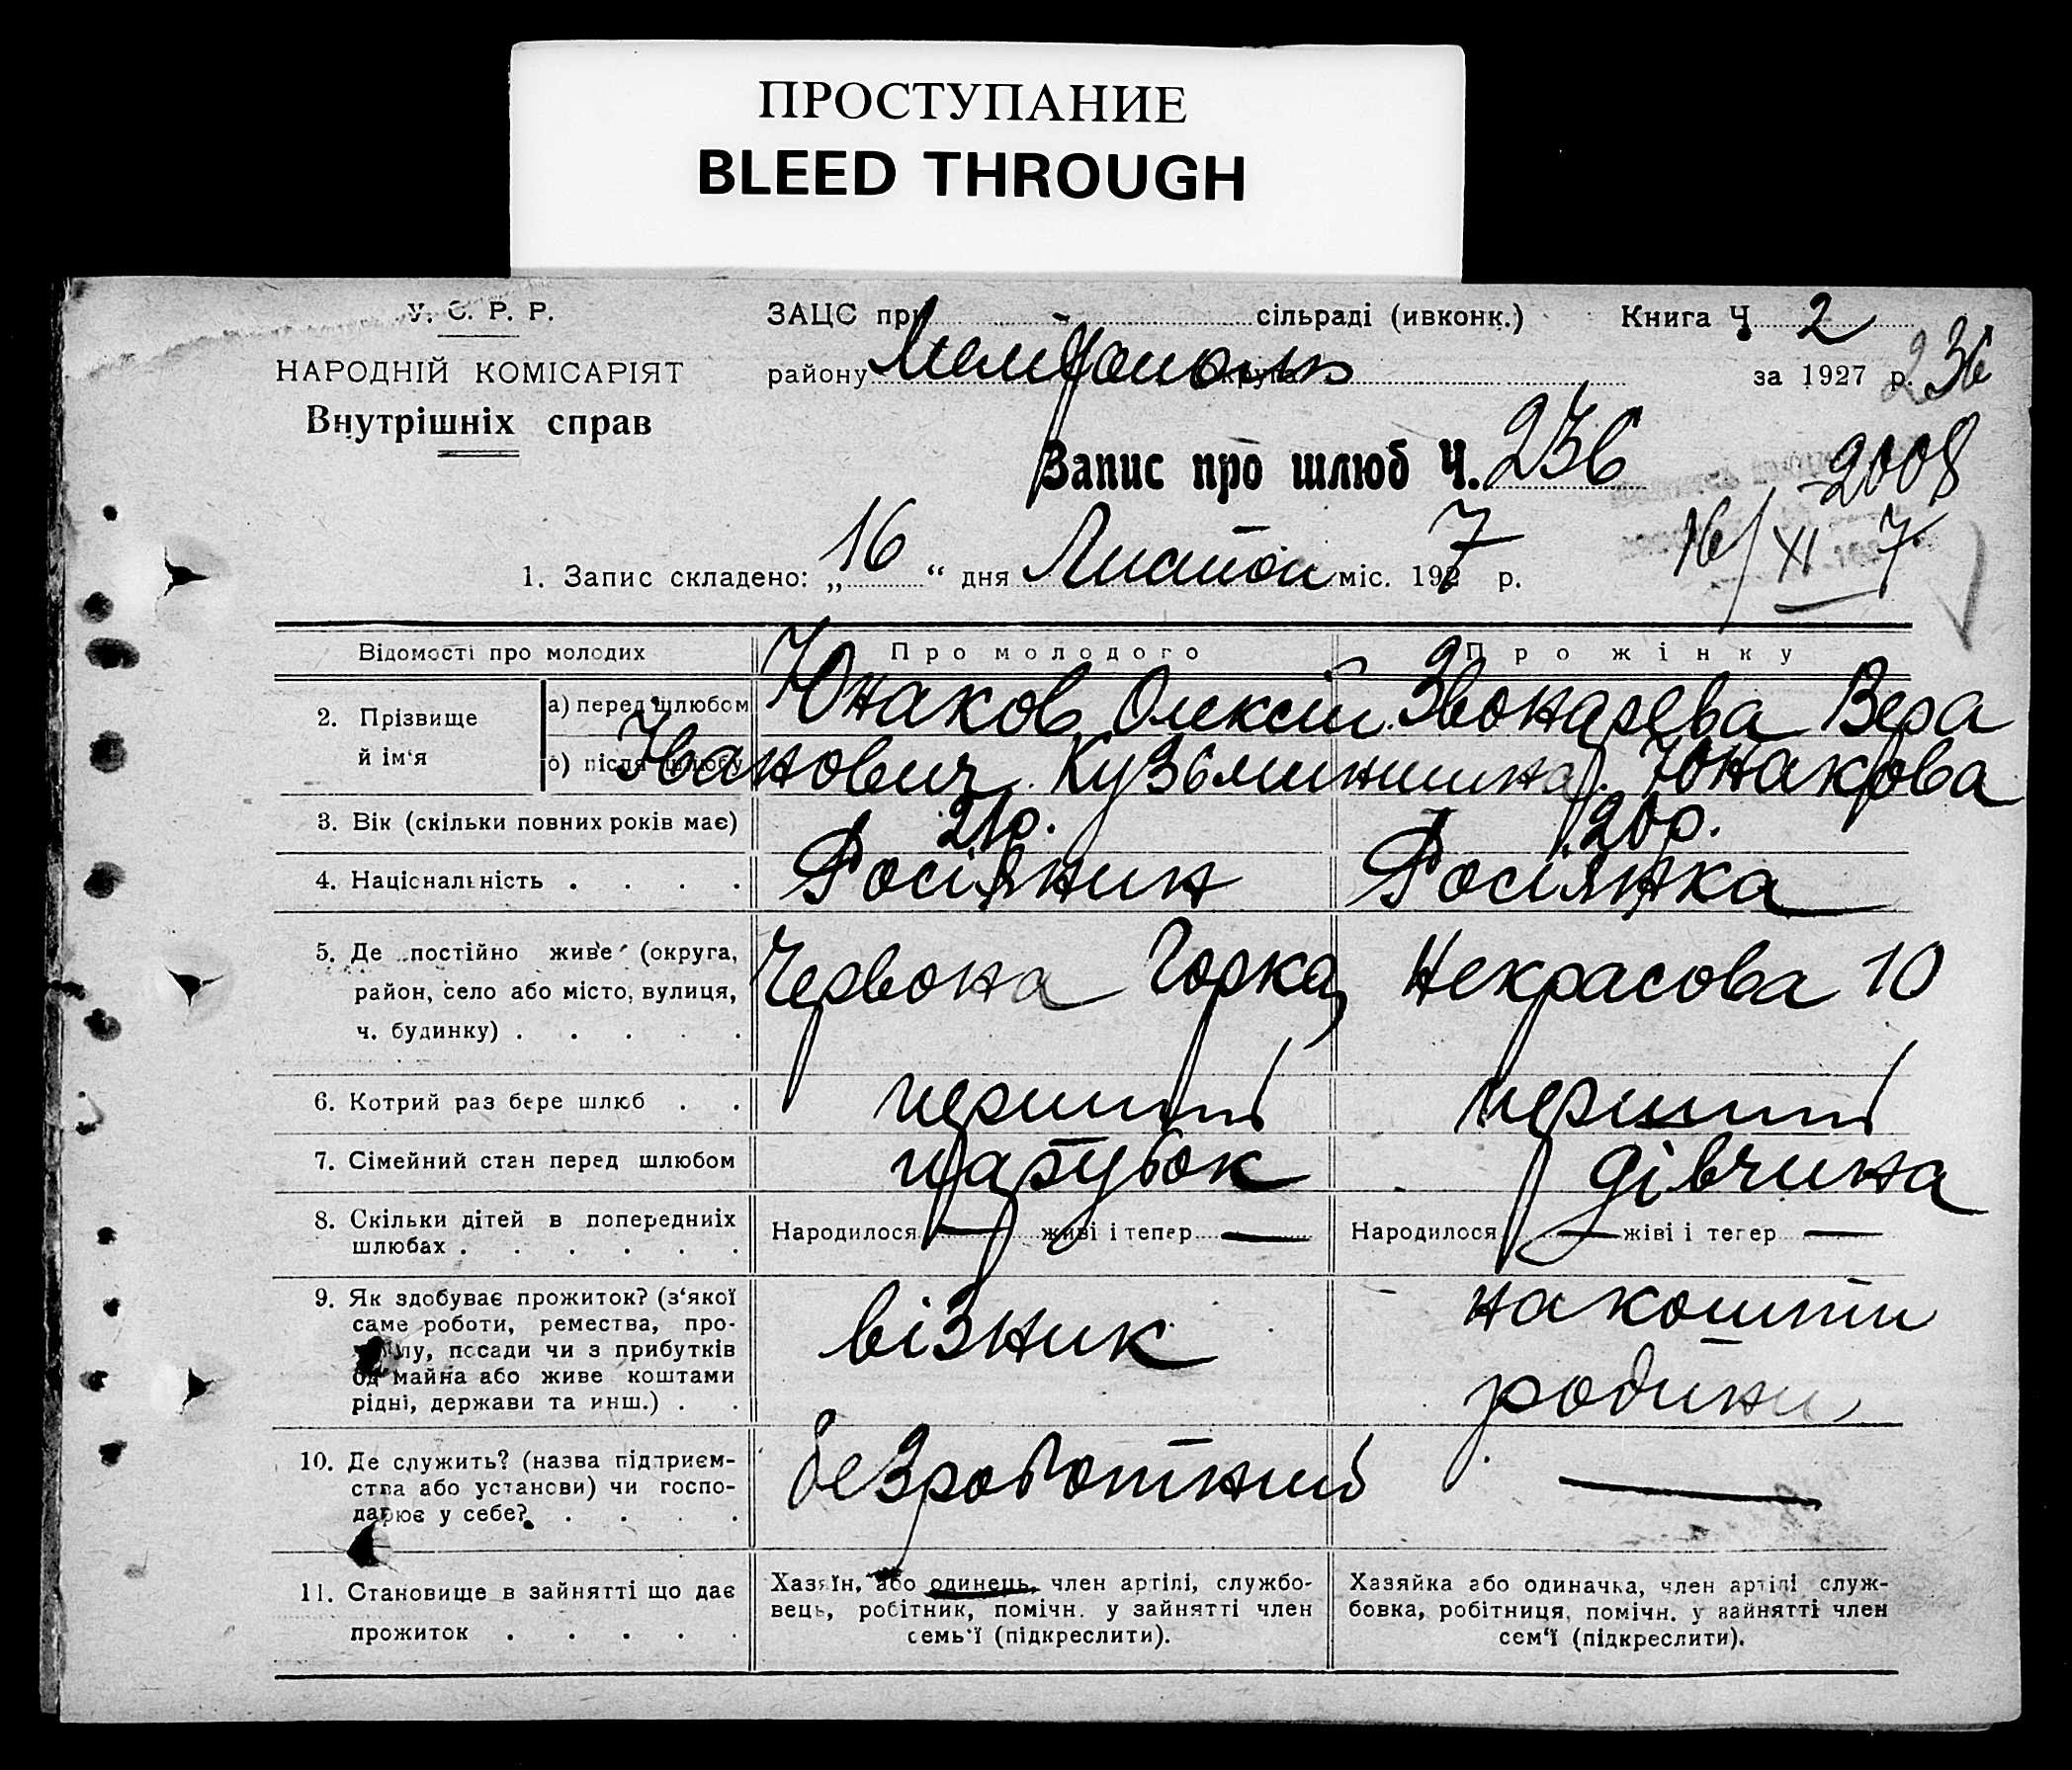 ПРОСТУПАНИЕ
BLEED THROUGH
У. С. Р. Р.
НАРОДНІЙ КОМІСАРІЯТ
Внутрішніх справ
ЗАЦС при сільраді (ивконк.) Книга Ч 2
району Мелітополь округи за 1927 р. 236
Запис про шлюб Ч. 236
2008
1. Запис складено: „16“ дня Листоп міс. 1927 р.
16/XI 7
Відомості про молодих Про молодого Про жінку
2. Прізвище й ім‘я
а) перед шлюбом Юнаков Олексій Звонарева Вера
б) після шлюбу Іванович Кузьминишна Юнакова
3. Вік (скільки повних років має) 21р. 20р.
4. Національність . . . . Росіянин Росіянка
5. Де постійно живе (округа,
район, село або місто, вулиця,
ч. будинку) . . . . .
Червона Горка, Некрасова 10
6. Котрий раз бере шлюб . . перший перший
7. Сімейний стан перед шлюбом парубок дівчина
8. Скільки дітей в попередниіх
шлюбах . . . . . .
Народилося — живі і тепер — Народилося — жіві і тепер —
9. Як здобуває прожиток? (з‘якої
саме роботи, ремества, про-
мислу, посади чи з прибутків
од майна або живе коштами
рідні, держави та инш.) . .
візник на кошти
родини
10. Де служить? (назва підприєм-
ства або установи) чи госпо-
дарює у себе? . . . .
безработний —
11. Становище в зайнятті що дає
прожиток . . . . .
Хазяїн, або одинець, член артілі, службо-
вець, робітник, помічн. у зайнятті член
семь‘ї (підкреслити).
Хазяйка або одиначка, член артілі служ-
бовка, робітниця, помічн. у зайнятті член
сем‘ї (підкреслити).